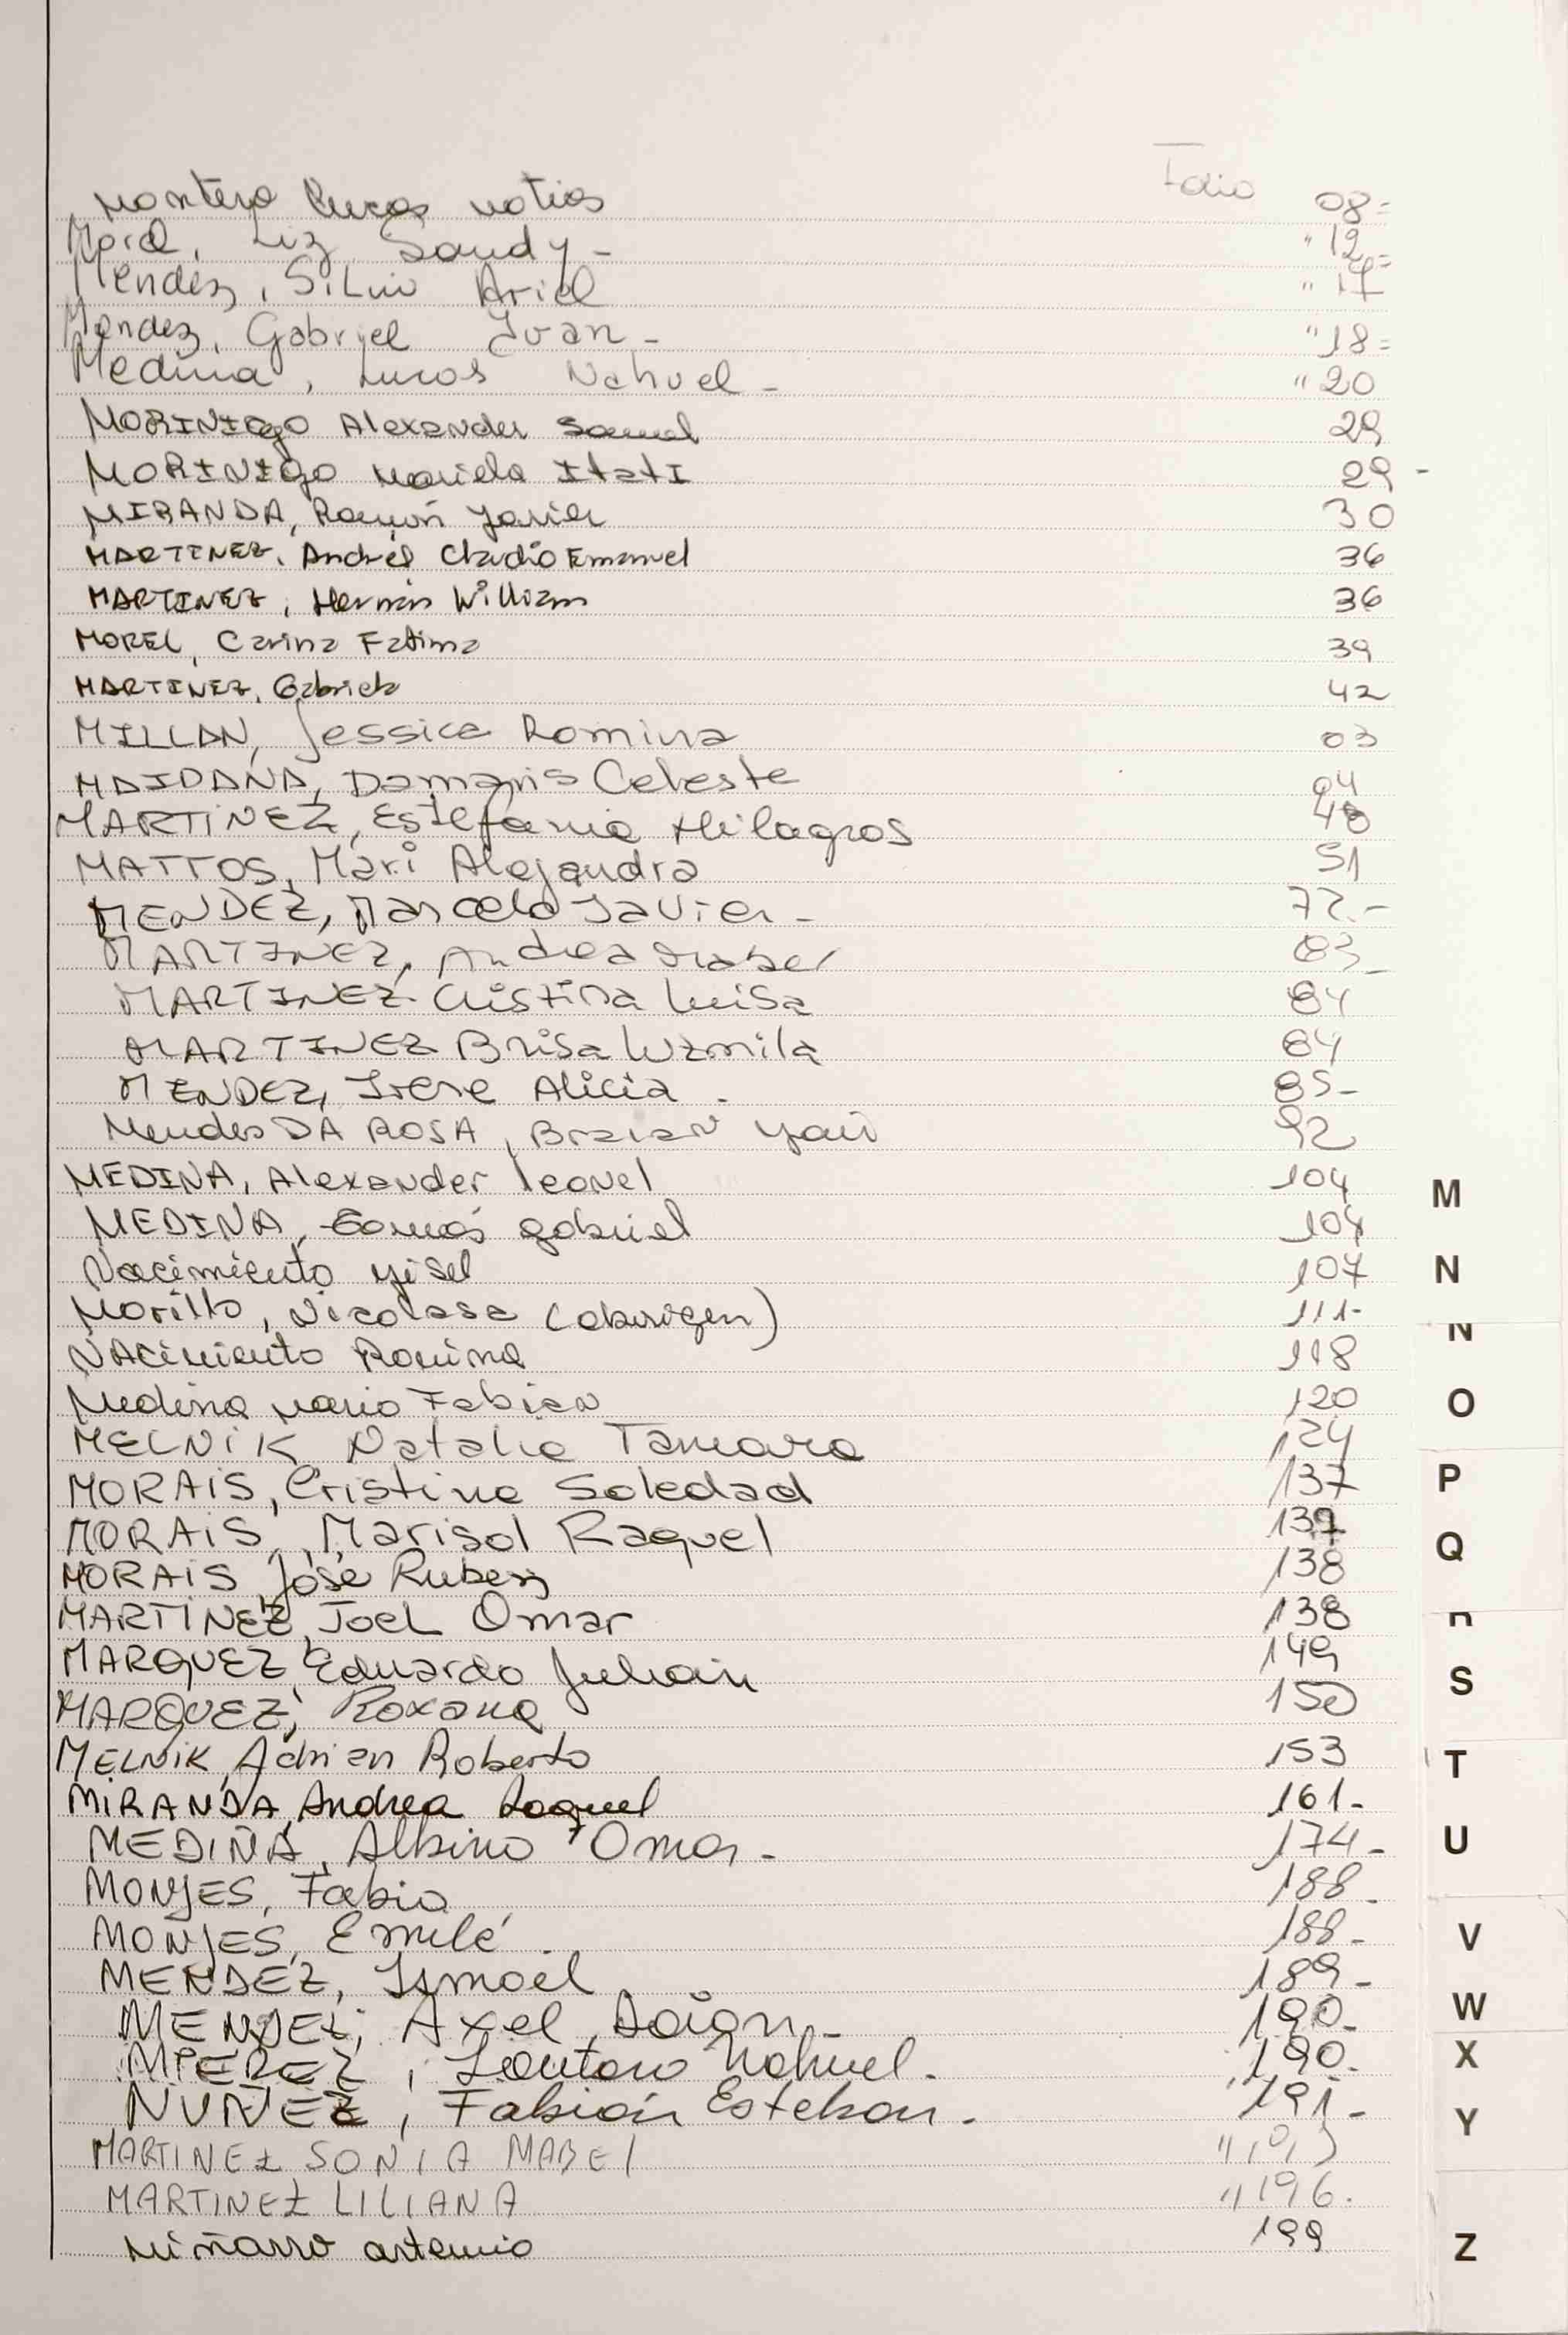 Montero Lucas Matias Folio 08=
Morel, Liz Sandy - " 12=
Mendez, Silvio Ariel " 17
Mendez, Gabriel Ivan - " 18=
Medina, Lucas Nahuel - " 20
MORINIGO Alexander Samuel 29
MORINIGO Mariela ItatI 29 -
MIRANDA, Ramón Javier 30
MARTINEZ, Andrés Claudio Emanuel 36
MARTINEZ, Hernán William 36
MOREL, Carina Fatima 39
MARTINEZ, Gabriela 42
MILLAN, Jessica Romina 03
MAIDANA, Damaris Celeste 04
MARTINEZ, Estefania Milagros 48
MATTOS, Mari Alejandra 51
MENDEZ, Marcelo Javier - 72.-
MARTINEZ, Andrea Isabel 83-
MARTINEZ Cristina Luisa 84
MARTINEZ Brisa Luzmila 84
MENDEZ, Irene Alicia . 85-
Mendes DA ROSA, Braian 92
MEDINA, Alexander leonel 104
MEDINA, Tomás gabriel 104
Nacimiento Yisel 107
Morillo, Nicolasa (aborigen) 111-
NAcimiento Romina 118
Medina Mario Fabian 120
MELNIK Natalia Tamara 124
MORAIS, Cristina Soledad 137
MORAIS, Marisol Raquel 137
MORAIS, José Ruben 138
MARTINEZ, Joel Omar 138
MARQUEZ, Eduardo Julian 149
MARQUEZ, Roxana 150
MELNIK, Adrian Roberto 153
MIRANDA, Andrea Raquel 161-
MEDINA, Albino Omar - 174-
MONJES, Fabio 188-
MONJES, Emile . 188-
MENDEZ, Ismael 189-
Axel, - 190-
Lautaro Nahuel. 190-
NUÑEZ, Fabián Esteban. - 191-
MARTINEZ SONIA MABEL
MARTINEZ LILIANA " 196.
Miñarro artemio 199
M
N
N
O
P
Q
R
S
T
U
V
W
X
Y
Z